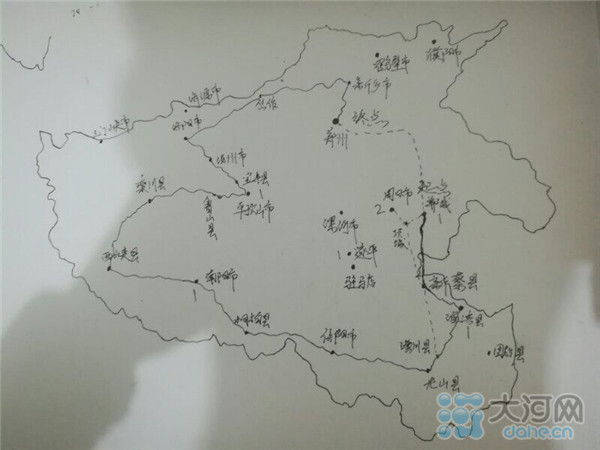 鹤壁市
濮阳市
新乡市
焦作
济源市
三门峡市
洛阳市
终点
郑州
汝州市
宝丰县
1
平顶山市
鲁山县
栾川县
周口市
2
起点
郸城
项城
漯河市
1
遂平
驻马店
西峡县
南阳市
1
新蔡县
淮滨县
1
桐柏县
信阳市
潢川县
固始县
光山县
大河网
dahe.cn